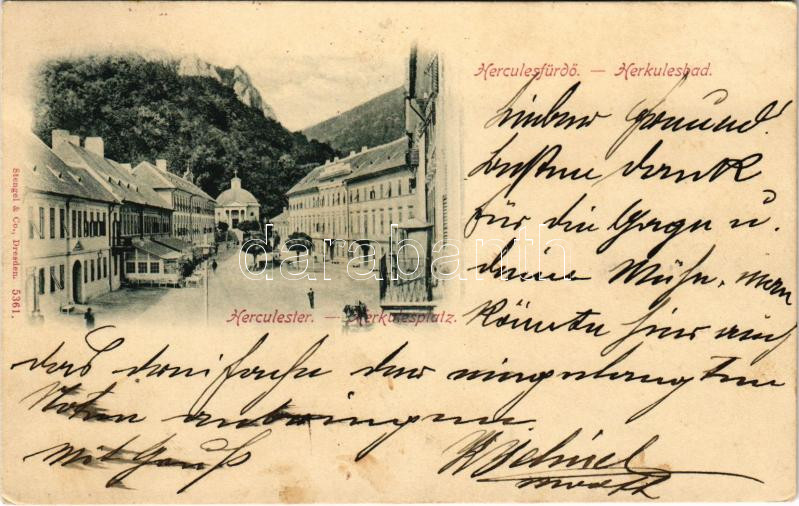 Herculesfürdő. — Herkulesbad.
Lieber Freund!
Besten Dank
für die Gage u.
deine Mühe, man
könnte hier auch
das dreifache der eingelangten
Noten anbringen
Mit Gruß
Stengel & Co., Dresden. 5361.
darabanth
Herculester. — Herkulesplatz.